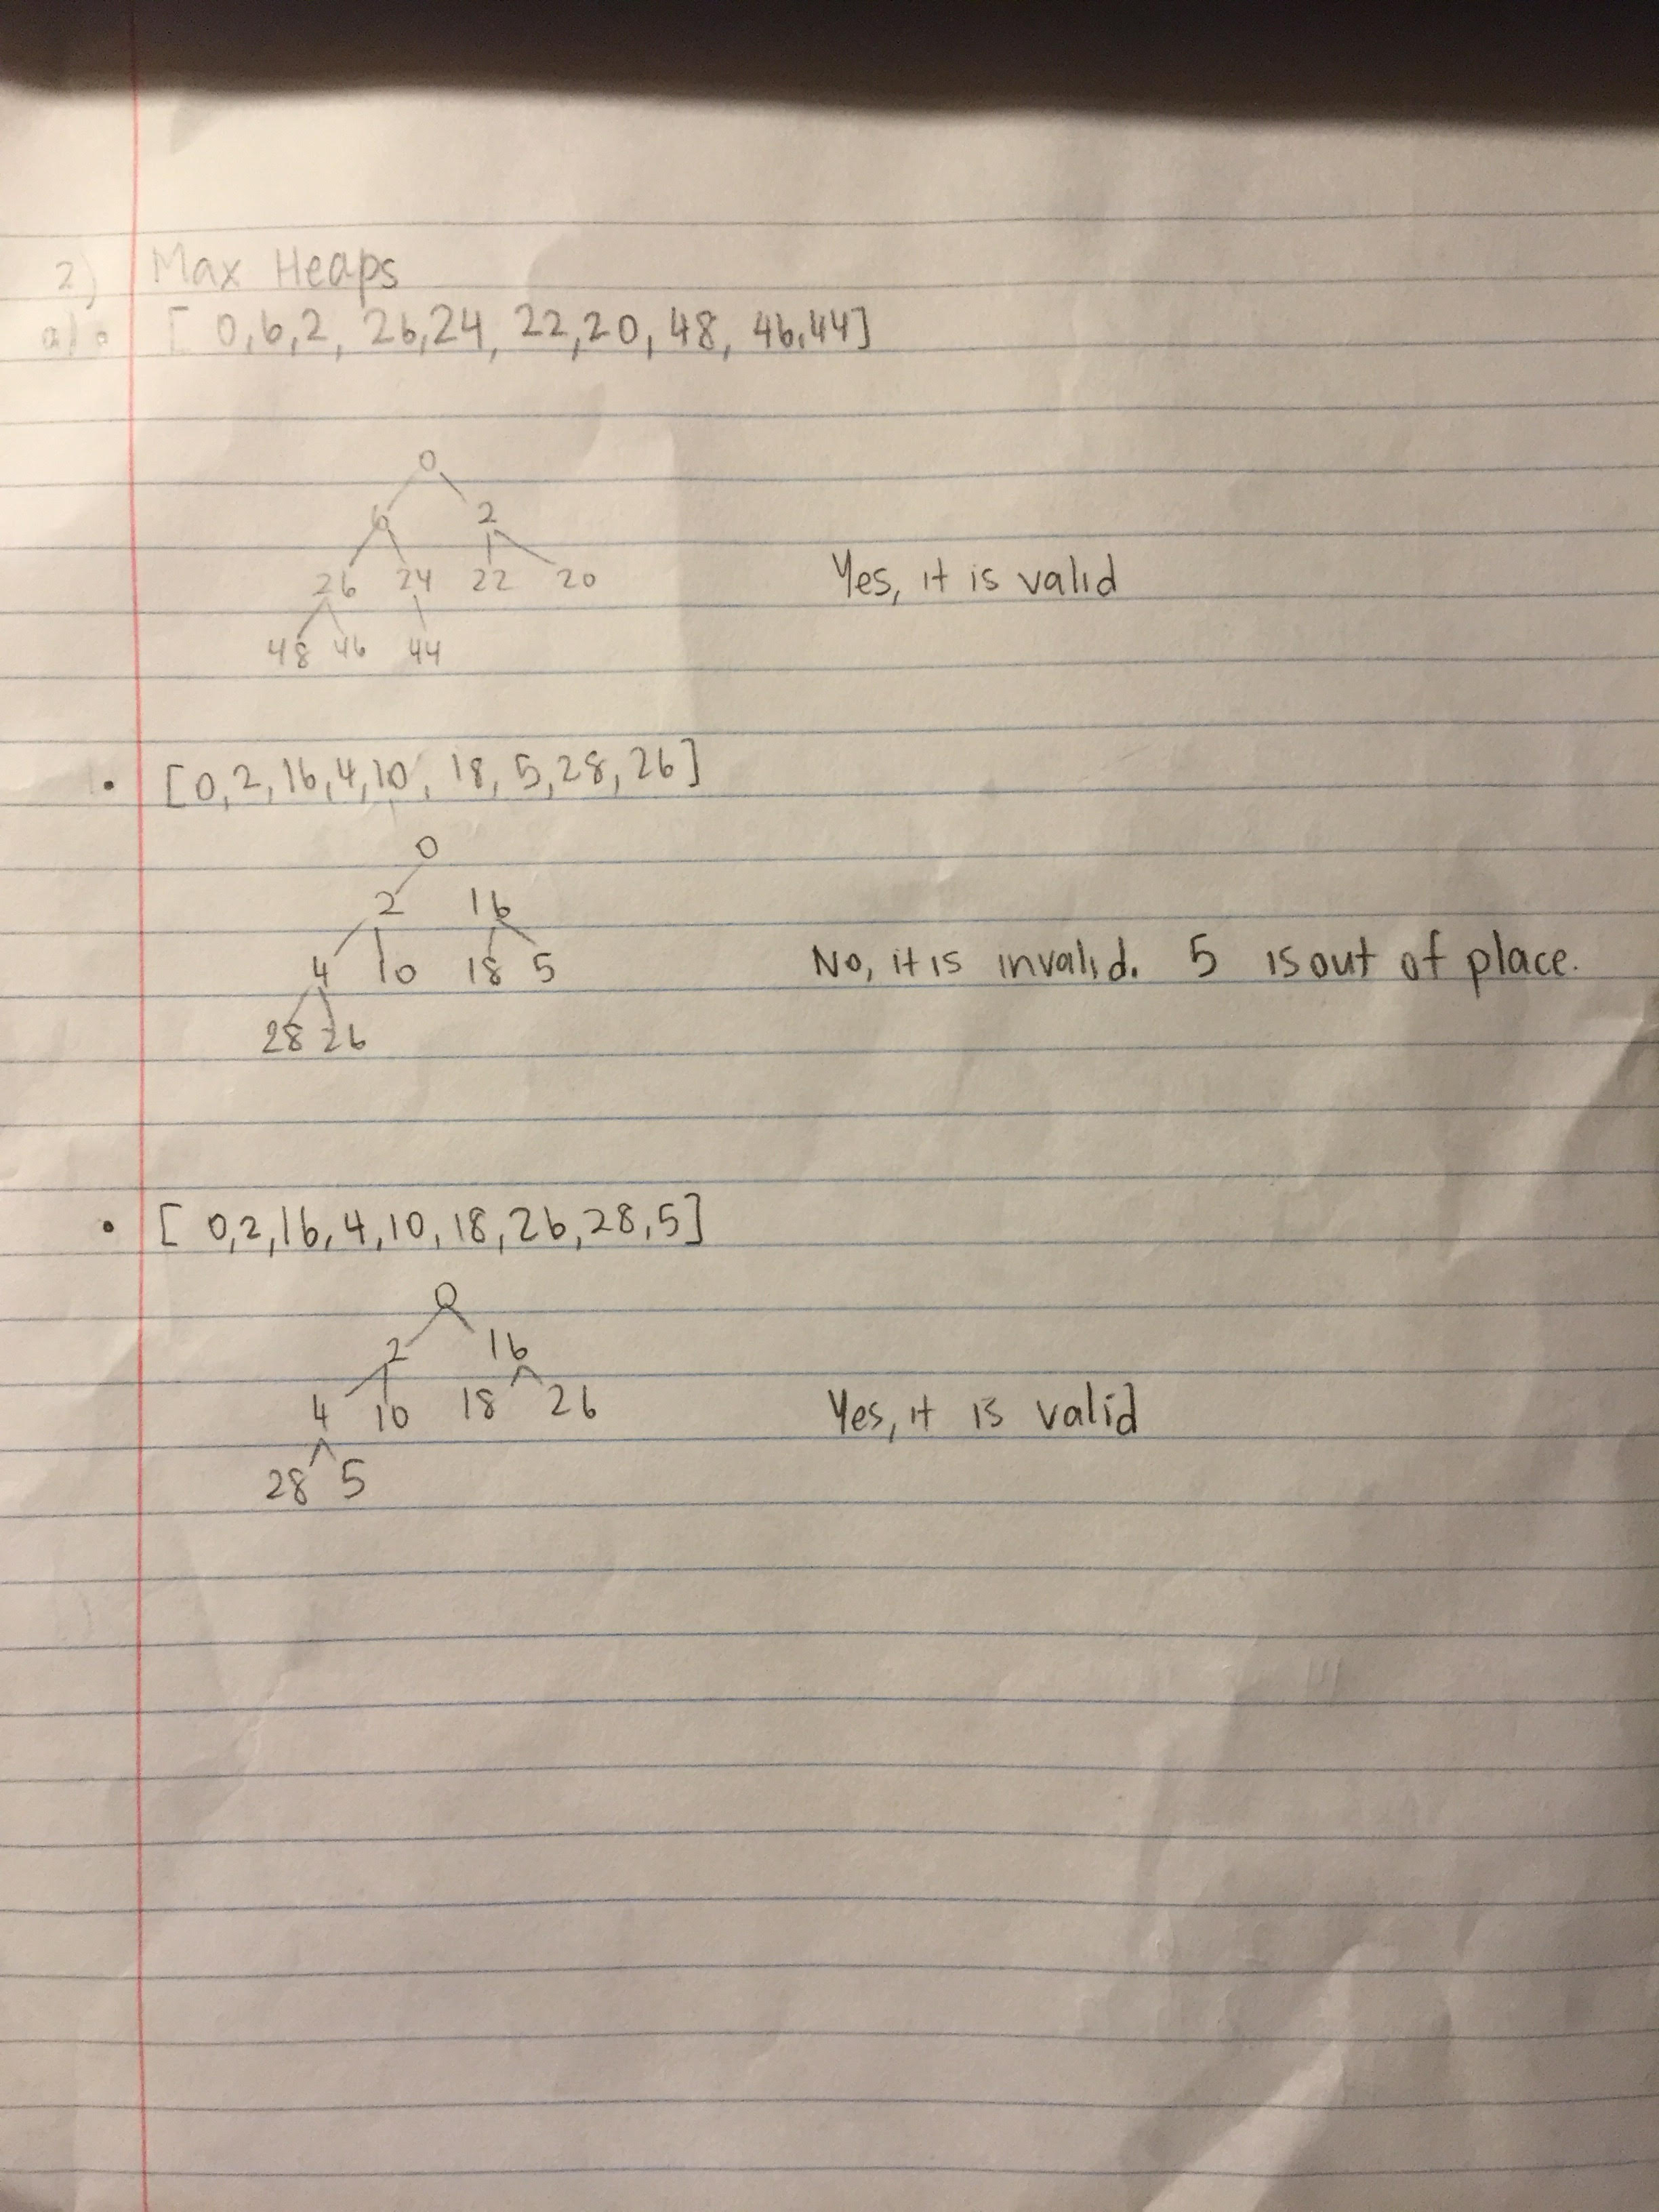 2) Max Heaps
a) • [ 0,6,2, 26,24, 22,20, 48, 46,44]
0
6 2
26 24 22 20
Yes, it is valid
48 46 44
• [0,2,16,4,10, 18, 5,28,26]
0
2 16
4 10 18 5
No, it is invalid. 5 is out of place.
28 26
• [ 0,2,16,4,10,18,26,28,5]
0
2 16
4 10 18 26
Yes, it is valid
28 5